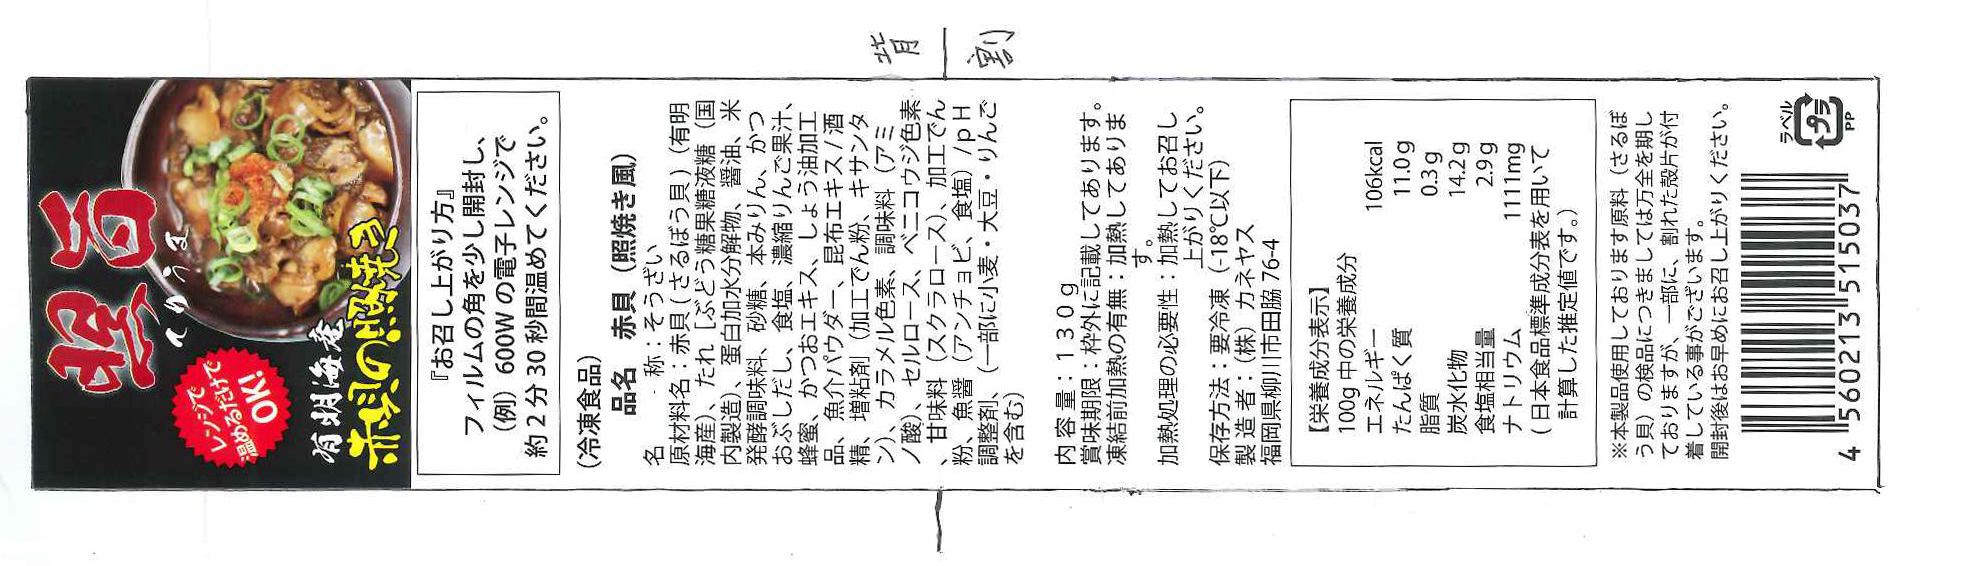 背割
極旨
ごくうま
レンジで
温めるだけで
OK!
有明海産
赤貝の照焼き
『お召し上がり方』
フィルムの角を少し開封し、
(例) 600W の電子レンジで
約 2 分 30 秒間温めてください。
（冷凍食品）
品名　赤貝（照焼き風）
名　　称：そうざい
原材料名：赤貝（さるぼう貝）（有明
海産）、たれ［ぶどう糖果糖液糖（国
内製造）、蛋白加水分解物、醤油、米
発酵調味料、砂糖、本みりん、かつ
おぶしだし、食塩、濃縮りんご果汁、
蜂蜜、かつおエキス、しょう油加工
品、魚介パウダー、昆布エキス/酒
精、増粘剤（加工でん粉、キサンタ
ン）、カラメル色素、調味料（アミ
ノ酸）、セルロース、ベニコウジ色素
、甘味料（スクラロース）、加工でん
粉、魚醤（アンチョビ、食塩）/ｐＨ
調整剤、（一部に小麦・大豆・りんご
を含む）
内 容 量：１３０ｇ
賞味期限：枠外に記載してあります。
凍結前加熱の有無：加熱してありま
す。
加熱処理の必要性：加熱してお召し
上がりください。
保存方法：要冷凍（-18℃以下）
製 造 者：（株）カネヤス
福岡県柳川市田脇 76-4
【栄養成分表示】
100g 中の栄養成分
エネルギー 106kcal
たんぱく質 11.0ｇ
脂質 0.3ｇ
炭水化物 14.2ｇ
食塩相当量 2.9ｇ
ナトリウム 1111mg
（日本食品標準成分表を用いて
計算した推定値です。）
※本製品使用しております原料（さるぼ
う貝）の検品につきましては万全を期し
ておりますが、一部に、割れた殻片が付
着している事がございます。
開封後はお早めにお召し上がりください。
ラベル
プラ
PP
4 560213 515037